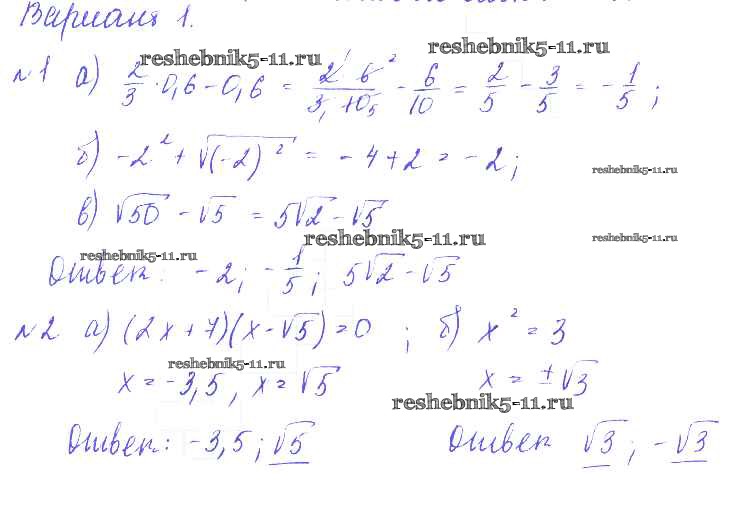 Вариант 1.
reshebnik5-11.ru reshebnik5-11.ru
№1 а) 2/3 · 0,6 - 0,6 = 2 6/3 10 - 6/10 = 2/5 - 3/5 = -1/5 ;
б) -2² + √(-2)² = -4+2 = -2; reshebnik5-11.ru
в) √50 - √5 = 5√2 - √5
reshebnik5-11.ru reshebnik5-11.ru
reshebnik5-11.ru
Ответ: -2; -1/5; 5√2 - √5
№2 а) (2x+7)(x-√5)=0 ; б) x² = 3
reshebnik5-11.ru
x = -3,5, x = √5 x = ±√3
reshebnik5-11.ru
Ответ: -3,5; √5 Ответ √3; -√3